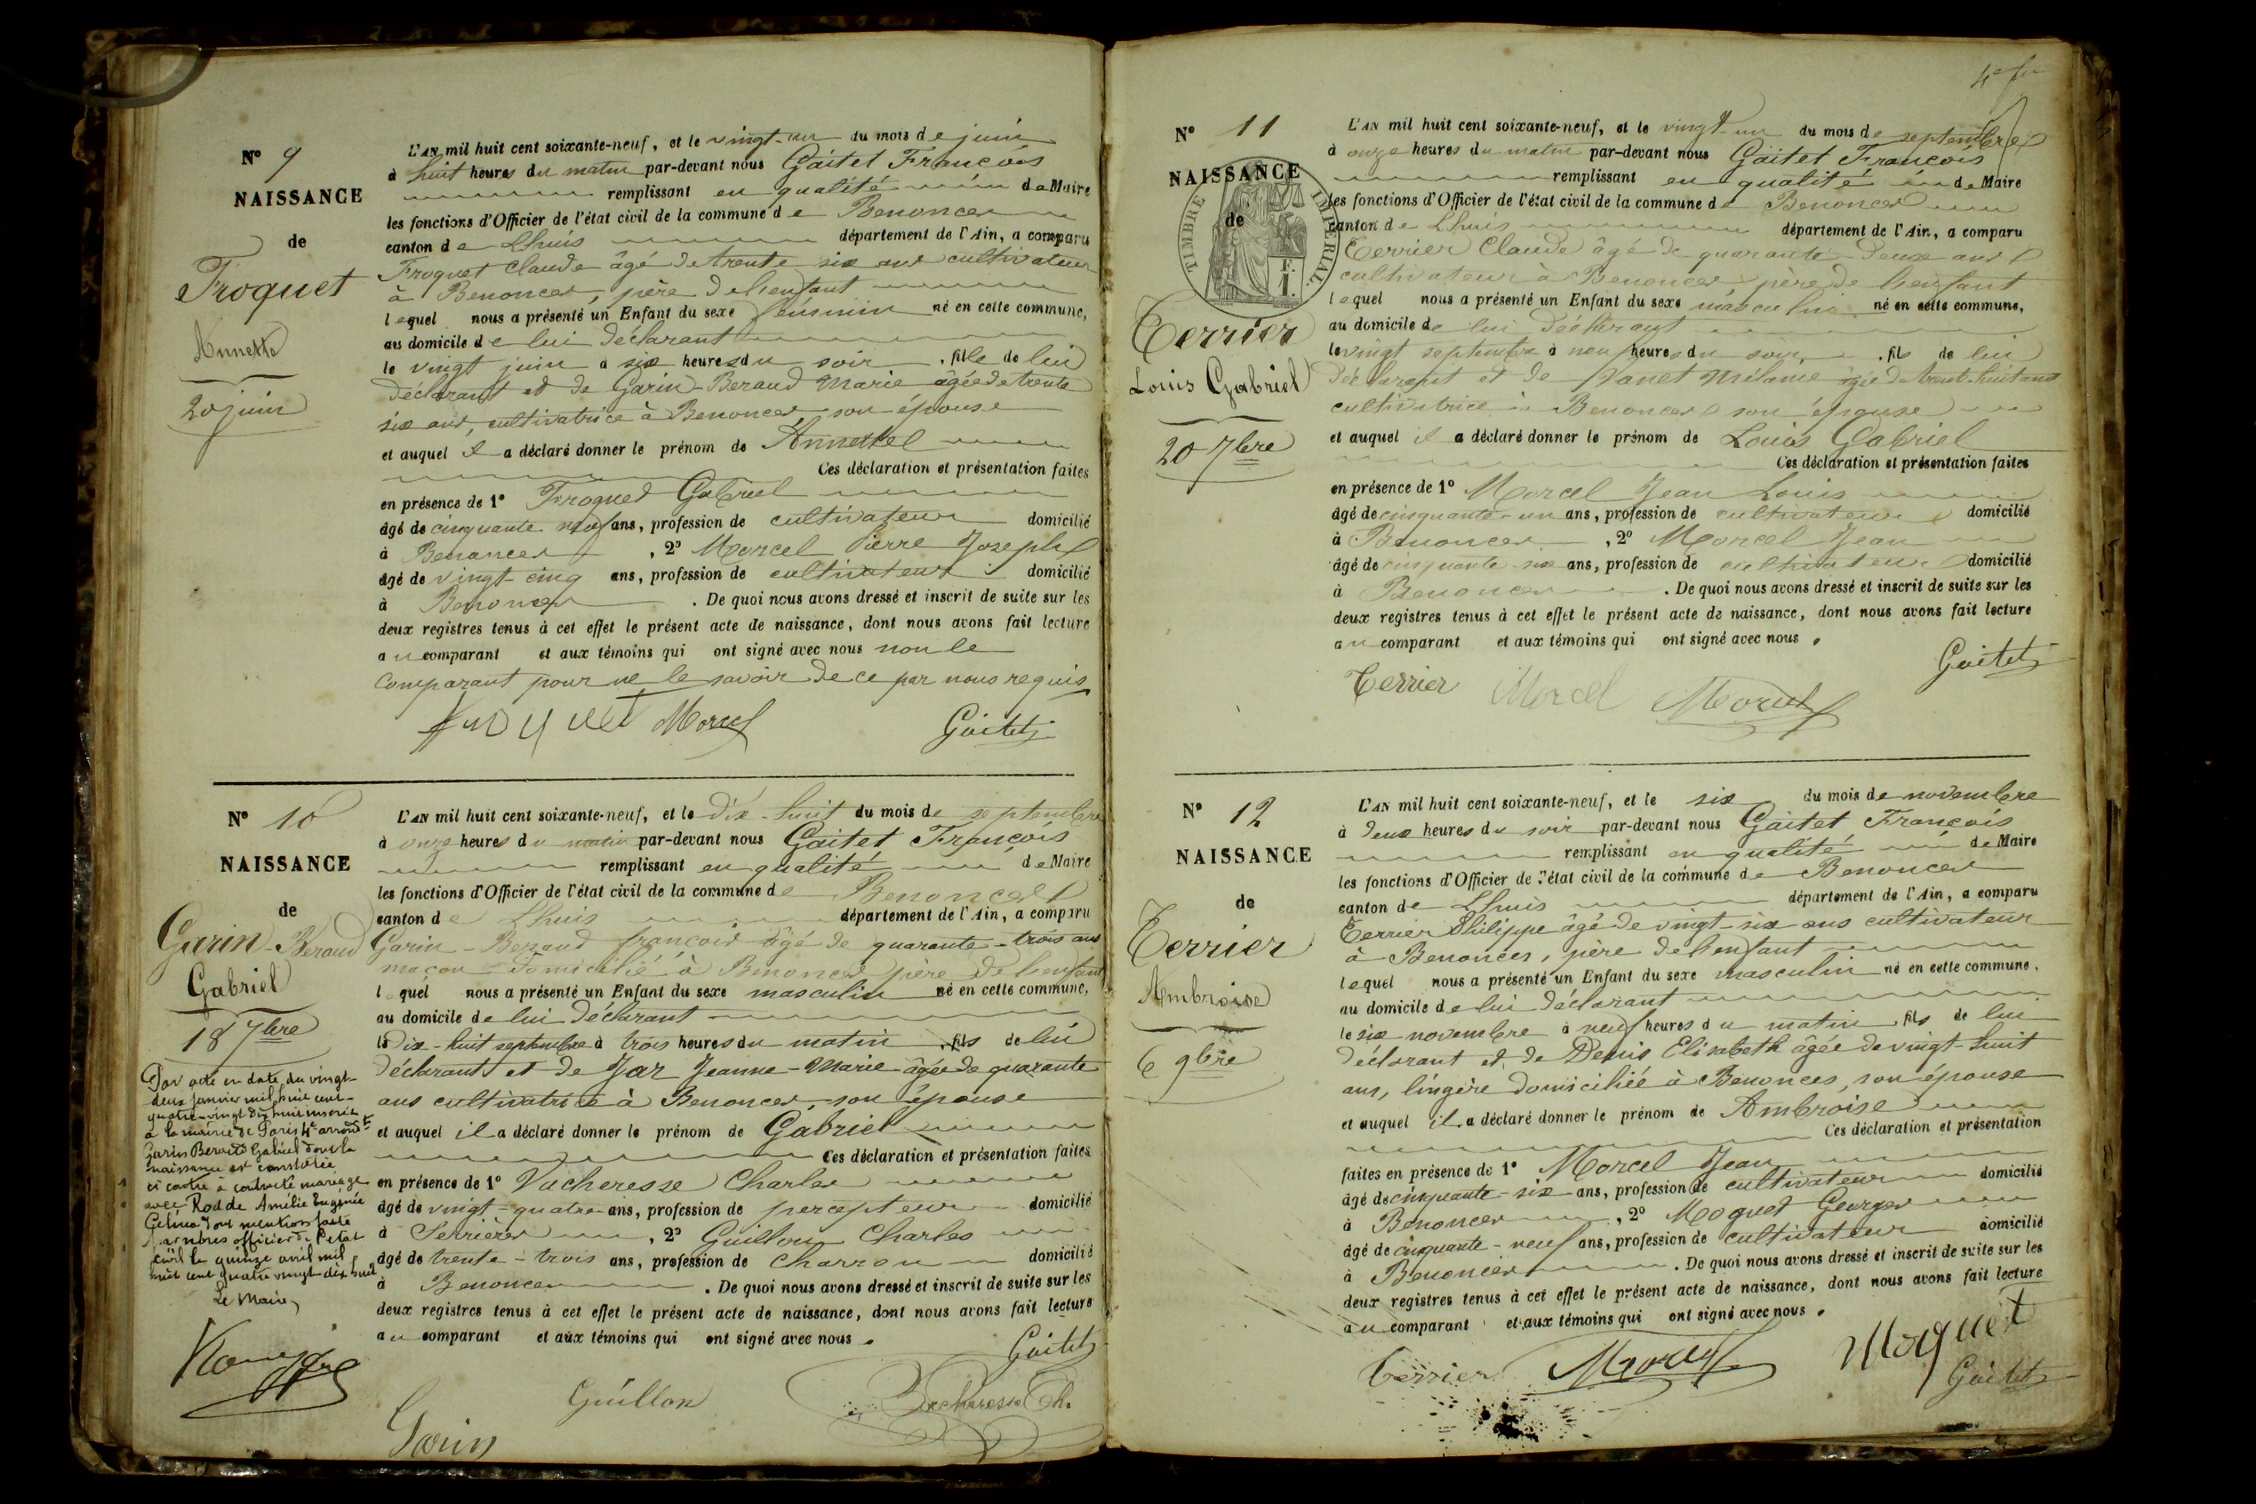 N° 9
NAISSANCE
de
Froquet
Annette
20 juin
L'AN mil huit cent soixante-neuf, et le vingt-un du mois de juin
à huit heures du matin par-devant nous Gaitet François
remplissant en qualité de Maire
les fonctions d'Officier de l'état civil de la commune de Benonces
canton de Lhuis département de l'Ain, a comparu
Froquet Claude âgé de trente six ans cultivateur
à Benonces, père de l'enfant
lequel nous a présenté un Enfant du sexe féminin né en cette commune,
au domicile de lui déclarant
le vingt juin à six heures du soir, fille de lui
déclarant et de Garin-Beraud Marie âgée de trente
six ans, cultivatrice à Benonces, son épouse
et auquel il a déclaré donner le prénom de Annette
Ces déclaration et présentation faites
en présence de 1° Froquet Gabriel
âgé de cinquante neuf ans, profession de cultivateur domicilié
à Benonces, 2° Morcel Pierre Joseph
âgé de vingt-cinq ans, profession de cultivateur domicilié
à Benonces. De quoi nous avons dressé et inscrit de suite sur les
deux registres tenus à cet effet le présent acte de naissance, dont nous avons fait lecture
au comparant et aux témoins qui ont signé avec nous non le
comparant pour ne le savoir de ce par nous requis
Froquet Morcel Gaitet
N° 10
NAISSANCE
de
Garin-Beraud
Gabriel
18 7bre
Par acte en date du vingt-
deux janvier mil huit cent
quatre-vingt dix huit inscrit
à la mairie de Paris 4e arrondt
Garin Beraud Gabriel dont la
naissance est constatée
ci contre a contracté mariage
avec Rodde Amélie Eugénie
Gelina dont mention faite
par nous officier de l'état
civil le quinze avril mil
huit cent quatre vingt dix huit
Le Maire,
L'AN mil huit cent soixante-neuf, et le dix-huit du mois de septembre
à onze heures du matin par-devant nous Gaitet François
remplissant en qualité de Maire
les fonctions d'Officier de l'état civil de la commune de Benonces
canton de Lhuis département de l'Ain, a comparu
Garin-Beraud françois âgé de quarante-trois ans
maçon domicilié à Benonces père de l'enfant
lequel nous a présenté un Enfant du sexe masculin né en cette commune,
au domicile de lui déclarant
le dix-huit septembre à trois heures du matin, fils de lui
déclarant et de Jar Jeanne-Marie âgée de quarante
ans cultivatrice à Benonces, son épouse
et auquel il a déclaré donner le prénom de Gabriel
Ces déclaration et présentation faites
en présence de 1° Vacheresse Charles
âgé de vingt-quatre ans, profession de percepteur domicilié
à Serrières, 2° Guillon Charles
âgé de trente-trois ans, profession de charron domicilié
à Benonces. De quoi nous avons dressé et inscrit de suite sur les
deux registres tenus à cet effet le présent acte de naissance, dont nous avons fait lecture
au comparant et aux témoins qui ont signé avec nous.
Gaitet
Guillon Vacheresse Ch.
Garin
N° 11
NAISSANCE
de
TIMBRE IMPÉRIAL
Terrier
Louis Gabriel
20 7bre
L'AN mil huit cent soixante-neuf, et le vingt-un du mois de septembre
à onze heures du matin par-devant nous Gaitet François
remplissant en qualité de Maire
les fonctions d'Officier de l'état civil de la commune de Benonces
canton de Lhuis département de l'Ain, a comparu
Terrier Claude âgé de quarante-deux ans
cultivateur à Benonces, père de l'enfant
lequel nous a présenté un Enfant du sexe masculin né en cette commune,
au domicile de lui déclarant
le vingt septembre à neuf heures du soir, fils de lui
déclarant et de Mélanie âgée de trente-huit ans
cultivatrice à Benonces son épouse
et auquel il a déclaré donner le prénom de Louis Gabriel
Ces déclaration et présentation faites
en présence de 1° Morcel Jean Louis
âgé de cinquante-un ans, profession de cultivateur domicilié
à Benonces, 2° Morcel Jean
âgé de cinquante-six ans, profession de cultivateur domicilié
à Benonces. De quoi nous avons dressé et inscrit de suite sur les
deux registres tenus à cet effet le présent acte de naissance, dont nous avons fait lecture
au comparant et aux témoins qui ont signé avec nous.
Gaitet
Terrier Morcel Morcel
N° 12
NAISSANCE
de
Terrier
Ambroise
6 9bre
L'AN mil huit cent soixante-neuf, et le six du mois de novembre
à deux heures du soir par-devant nous Gaitet François
remplissant en qualité de Maire
les fonctions d'Officier de l'état civil de la commune de Benonces
canton de Lhuis département de l'Ain, a comparu
Terrier Philippe âgé de vingt-six ans cultivateur
à Benonces, père de l'enfant
lequel nous a présenté un Enfant du sexe masculin né en cette commune,
au domicile de lui déclarant
le six novembre à neuf heures du matin, fils de lui
déclarant et de Denis Elisabeth âgée de vingt-huit
ans, lingère domiciliée à Benonces, son épouse
et auquel il a déclaré donner le prénom de Ambroise
Ces déclaration et présentation
faites en présence de 1° Morcel Jean
âgé de cinquante-six ans, profession de cultivateur domicilié
à Benonces, 2° Moquet Georges
âgé de cinquante-neuf ans, profession de cultivateur domicilié
à Benonces. De quoi nous avons dressé et inscrit de suite sur les
deux registres tenus à cet effet le présent acte de naissance, dont nous avons fait lecture
au comparant et aux témoins qui ont signé avec nous.
Terrier Morcel Moquet
Gaitet